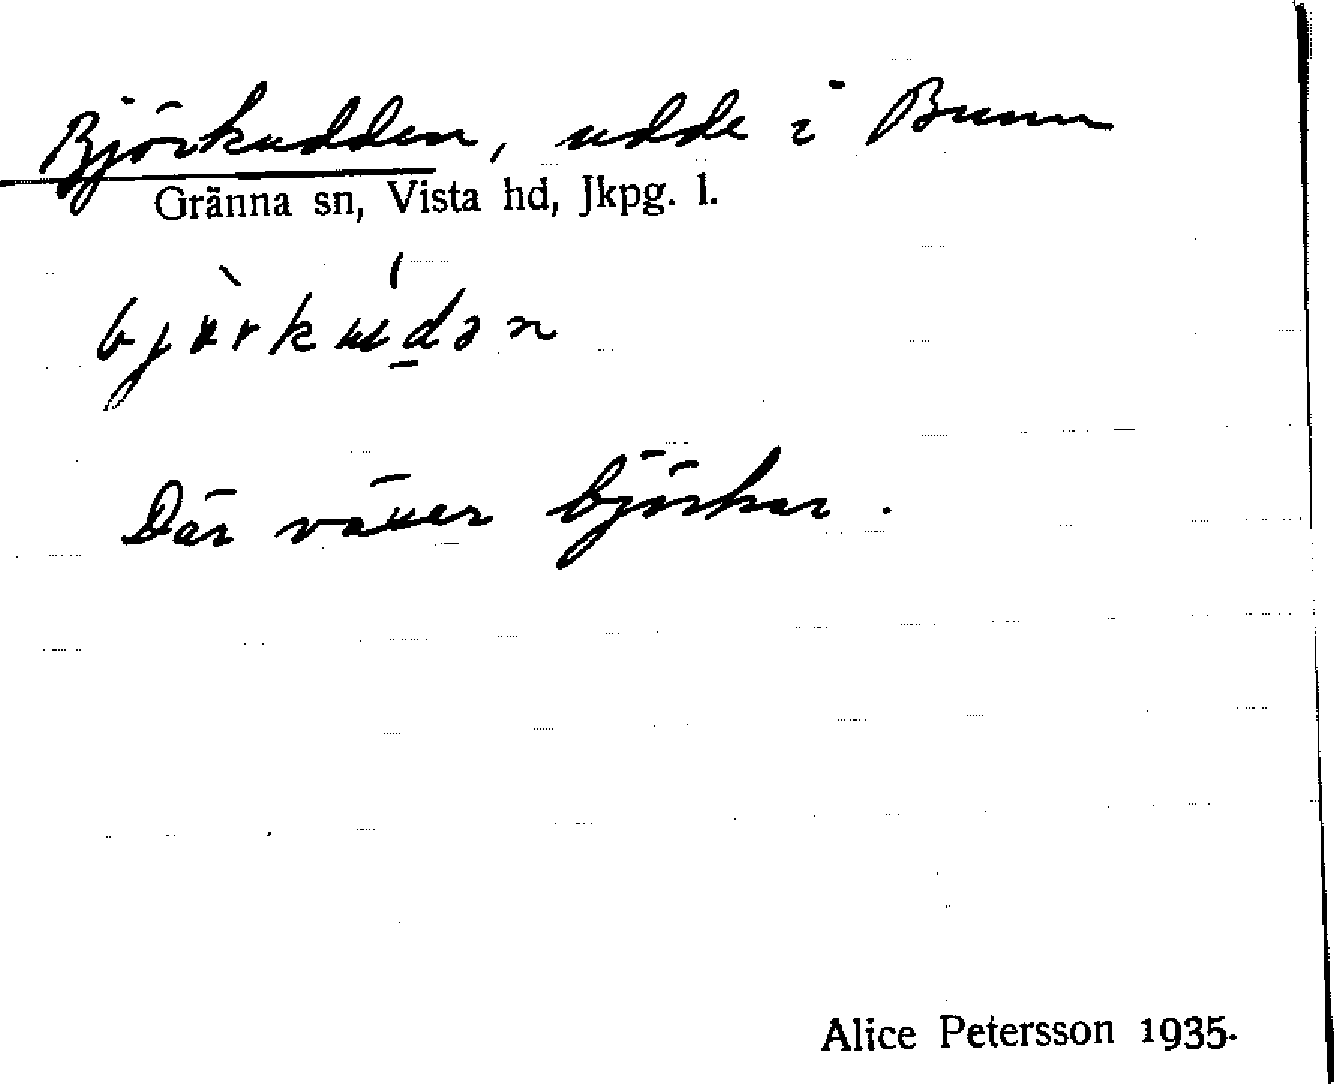 Björkudden, udde i Bunn
Gränna sn, Vista hd, Jkpg. l.
Där växer björkar.
Alice Petersson 1935.